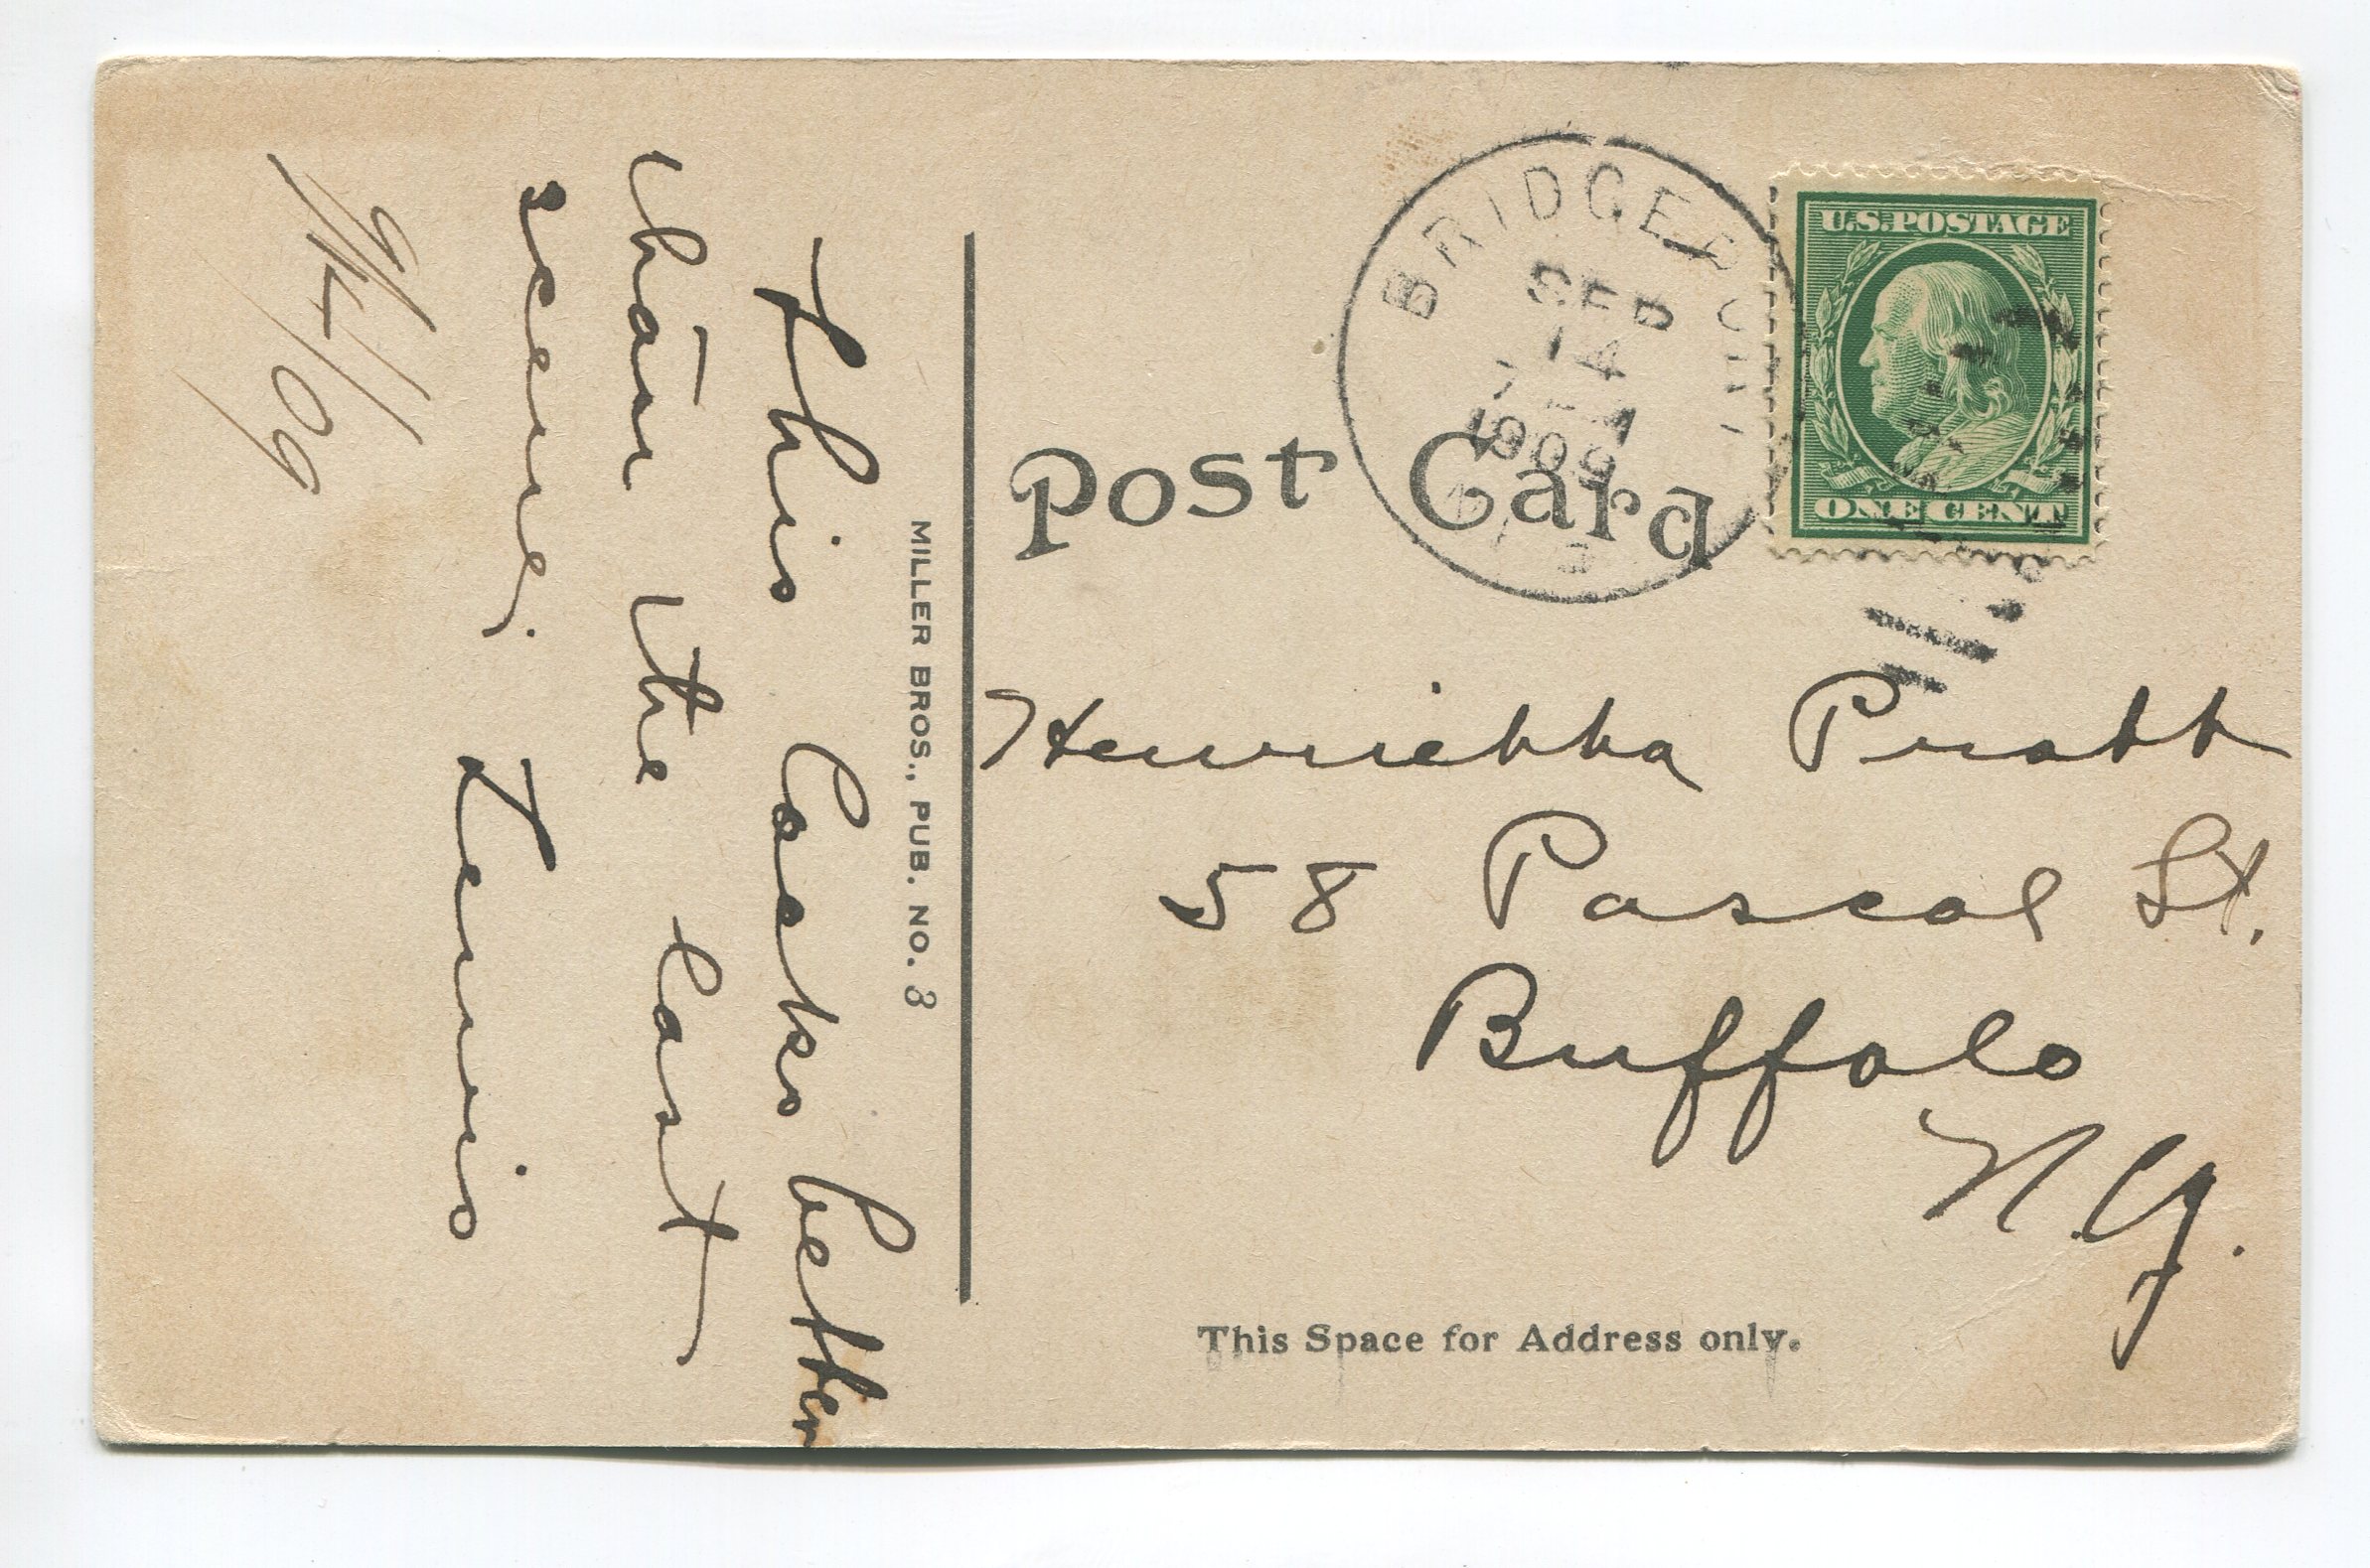 This looks better
than the last
scene.
Lewis
9/4/09
MILLER BROS., PUB. NO. 3
BRIDGEPORT
SEP
4
1909
Post Card
U.S. POSTAGE
ONE CENT
Henrietta Pratt
58 Pascal St.
Buffalo
N.Y.
This Space for Address only.